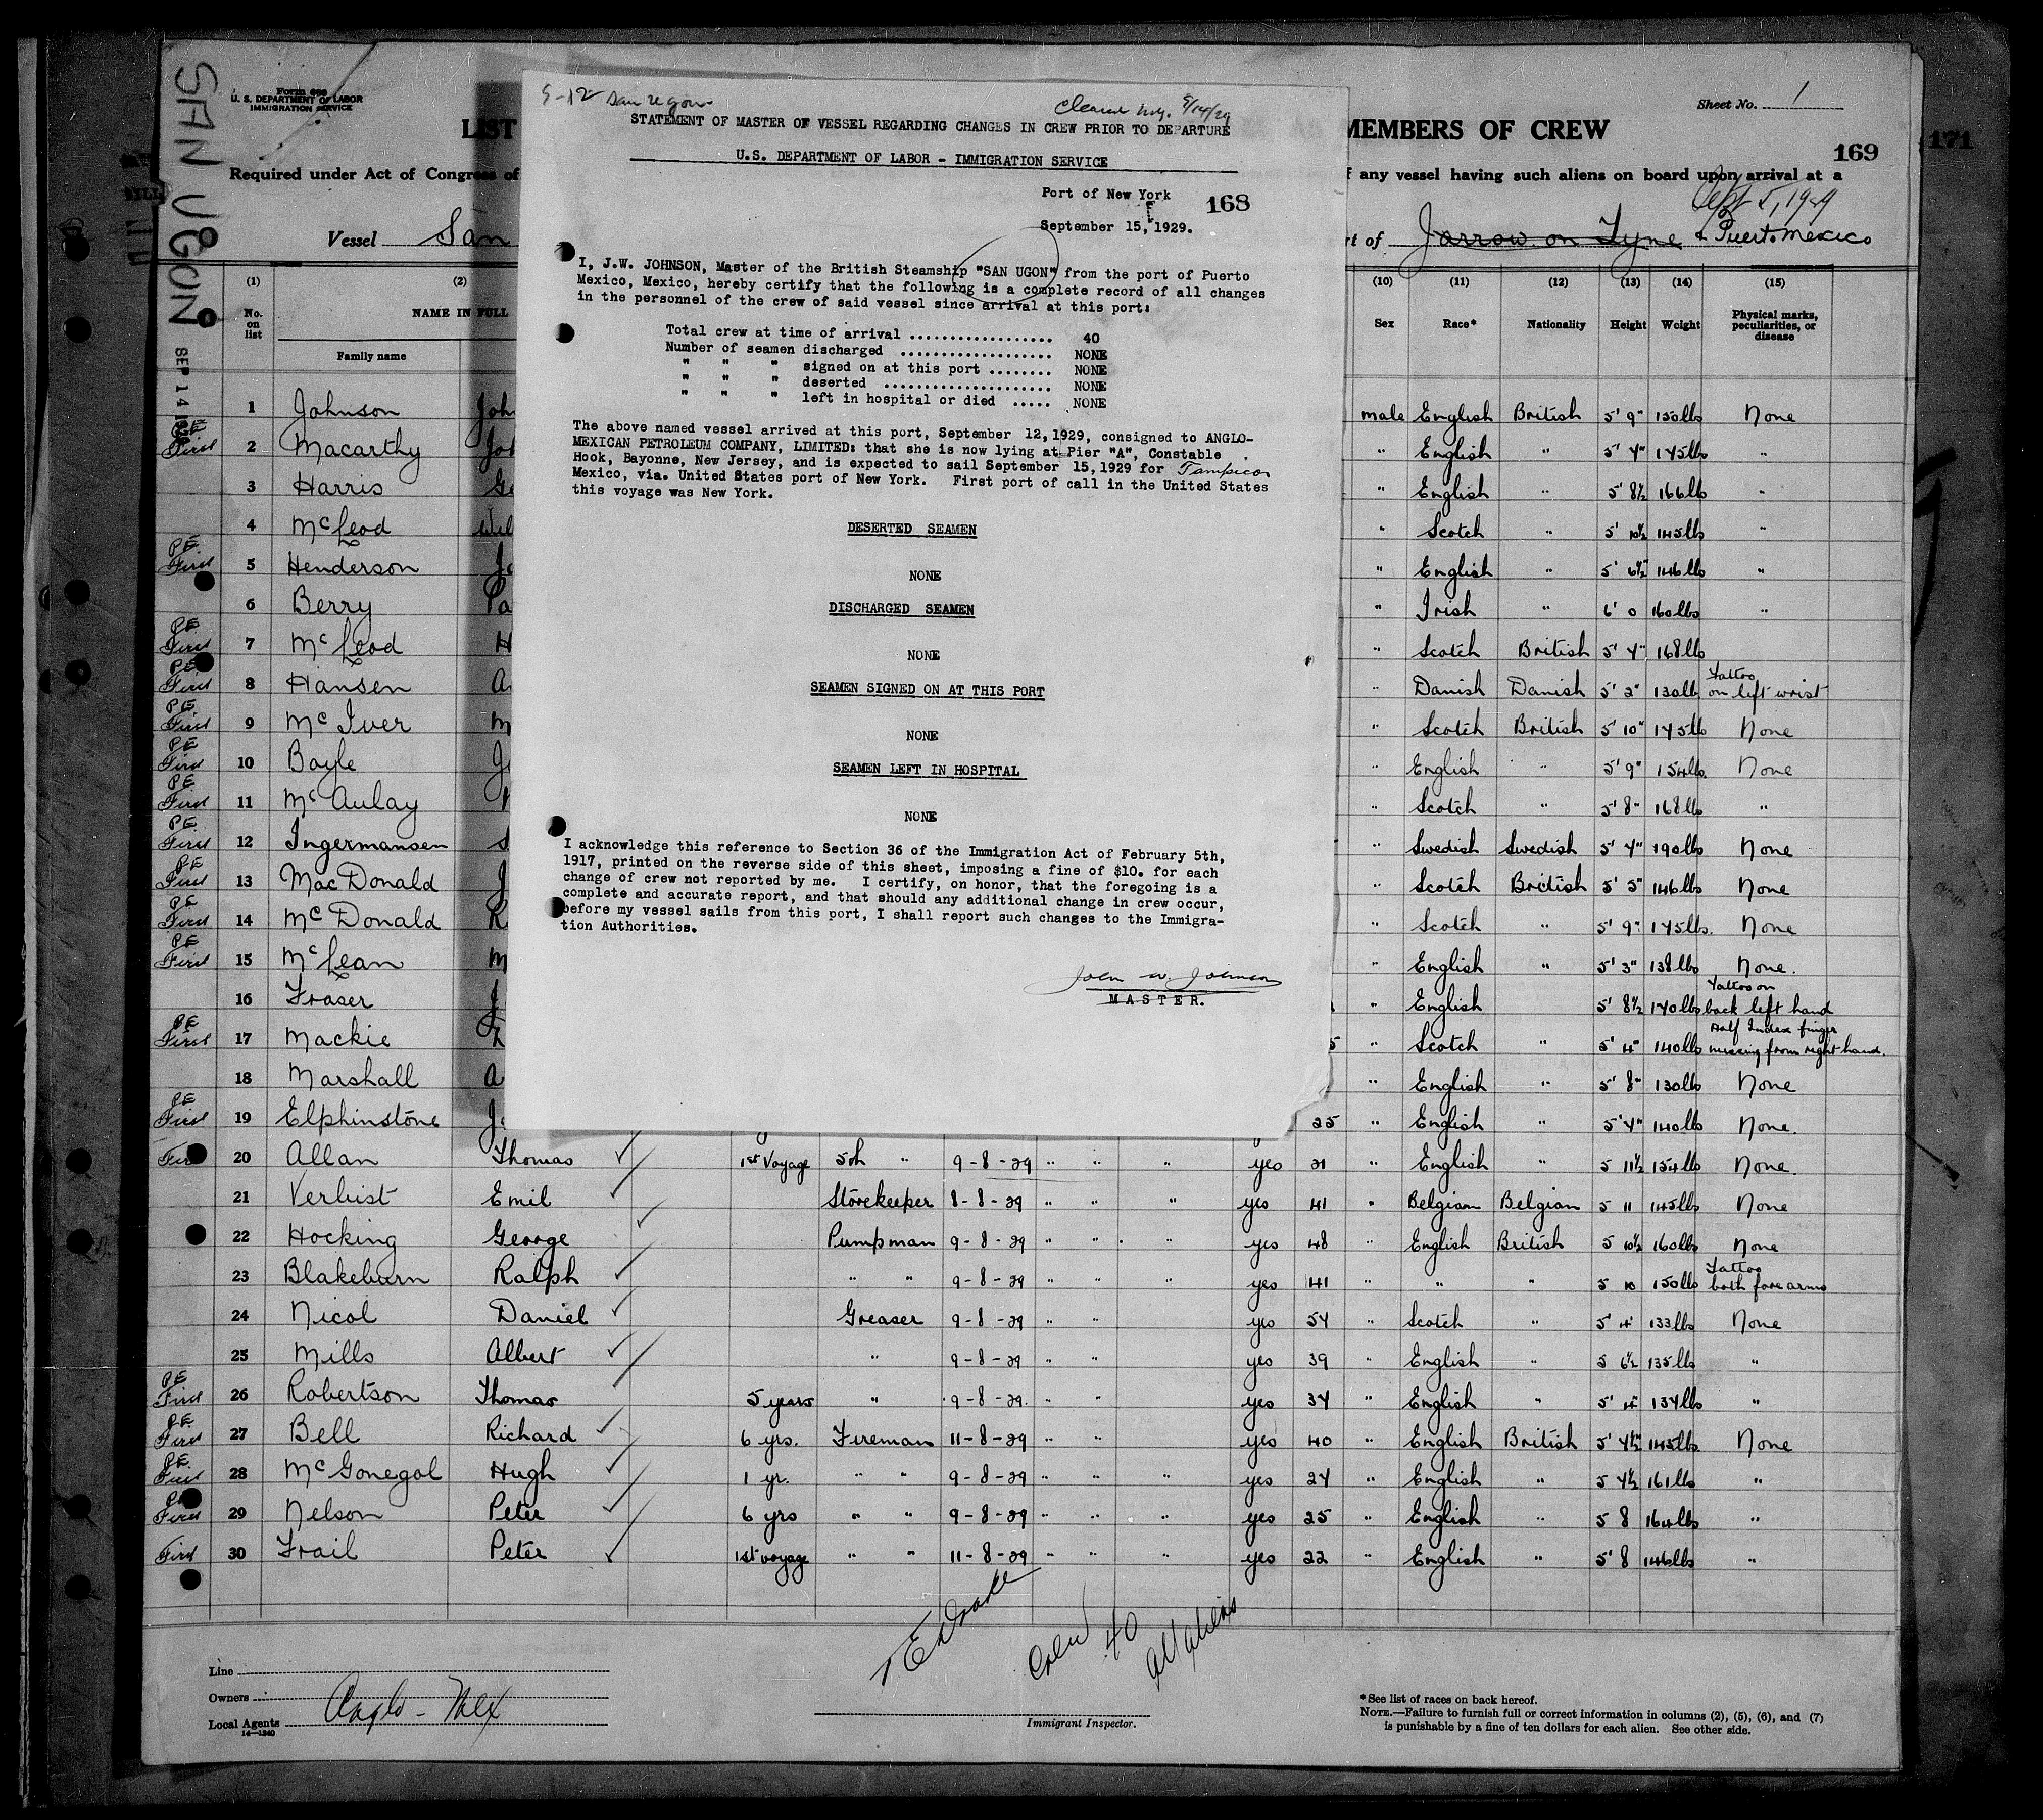 SAN UGON
SEP 14 1929
Form 680
U. S. DEPARTMENT OF LABOR
IMMIGRATION SERVICE
LIST
MEMBERS OF CREW
Sheet No. 1
169
171
Required under Act of Congress of
f any vessel having such aliens on board upon arrival at a
Sept 5, 1929
Vessel San
rt of Jarrow on Tyne & Puerto Mexico
9-12 San Ugon
Cleared 9/14/29
STATEMENT OF MASTER OF VESSEL REGARDING CHANGES IN CREW PRIOR TO DEPARTURE
U.S. DEPARTMENT OF LABOR - IMMIGRATION SERVICE
Port of New York
168
September 15, 1929.
I, J.W. JOHNSON, Master of the British Steamship "SAN UGON" from the port of Puerto
Mexico, Mexico, hereby certify that the following is a complete record of all changes
in the personnel of the crew of said vessel since arrival at this port:
Total crew at time of arrival ................... 40
Number of seamen discharged .................... NONE
" " " signed on at this port ........ NONE
" " " deserted ...................... NONE
" " " left in hospital or died ..... NONE
The above named vessel arrived at this port, September 12, 1929, consigned to ANGLO-
MEXICAN PETROLEUM COMPANY, LIMITED: that she is now lying at Pier "A", Constable
Hook, Bayonne, New Jersey, and is expected to sail September 15, 1929 for Tampico
Mexico, via. United States port of New York. First port of call in the United States
this voyage was New York.
DESERTED SEAMEN
NONE
DISCHARGED SEAMEN
NONE
SEAMEN SIGNED ON AT THIS PORT
NONE
SEAMEN LEFT IN HOSPITAL
NONE
I acknowledge this reference to Section 36 of the Immigration Act of February 5th,
1917, printed on the reverse side of this sheet, imposing a fine of $10. for each
change of crew not reported by me. I certify, on honor, that the foregoing is a
complete and accurate report, and that should any additional change in crew occur,
before my vessel sails from this port, I shall report such changes to the Immigra-
tion Authorities.
John W. Johnson
MASTER.
(1) (2) (10) (11) (12) (13) (14) (15)
No. on list NAME IN FULL Sex Race* Nationality Height Weight Physical marks, peculiarities, or disease
Family name
1 Johnson Joh male English British 5' 9" 150lbs None
PE First 2 Macarthy Joh " English " 5' 4" 145lbs "
3 Harris Ge " English " 5' 8½ 166lb "
4 McLeod Wil " Scotch " 5' 10½ 145lb "
PE First 5 Henderson Jo " English " 5' 6½" 146lb "
6 Berry Pa " Irish " 6' 0 160lbs "
PE First 7 McLeod H " Scotch British 5' 4" 168lb
PE First 8 Hansen A " Danish Danish 5' 2" 130lb Tattoo on left wrist
PE First 9 McIver M " Scotch British 5' 10" 145lb None
PE First 10 Boyle J " English " 5' 9" 154lb. None
PE First 11 McAulay " Scotch " 5' 8" 168lb "
PE First 12 Ingermansen S " Swedish Swedish 5' 4" 190lbs None
PE First 13 MacDonald J " Scotch British 5' 5" 146lb None
PE First 14 McDonald R " Scotch " 5' 9" 145lbs. None
PE First 15 McLean M " English " 5' 3" 138lbs None.
16 Fraser J " English 5' 8½ 140lbs Tattoo on back left hand
PE First 17 Mackie 5 " Scotch " 5' 4" 140lbs Half Index finger missing from right hand.
18 Marshall A " English " 5' 8" 130lb None
PE First 19 Elphinstone Jo 25 " English " 5' 4" 140lb None.
First 20 Allan Thomas 1st Voyage 5th " 9-8-29 " " " yes 21 " English " 5 11½ 154lb None.
21 Verhist Emil Storekeeper 8-8-29 " " " yes 41 " Belgian Belgian 5 11 145lb None
22 Hocking George Pumpman 9-8-29 " " " yes 48 " English British 5 10½ 160lb None
23 Blakeburn Ralph " " 9-8-29 " " " yes 41 " " " 5 10 150lb Tattoo both forearms
24 Nicol Daniel Greaser 9-8-29 " " yes 54 " Scotch " 5' 4" 133lb None
25 Mills Albert " 9-8-29 " " yes 39 " English " 5 6½ 135lb "
PE First 26 Robertson Thomas 5 years " 9-8-29. " " yes 34 " English " 5' 4" 134lb "
PE First 27 Bell Richard 6 yrs. Fireman 11-8-29 " " yes 40 " English British 5' 4½" 145lb. None
PE First 28 McGonegal Hugh 1 yr. " " 9-8-29 " " " yes 24 " English " 5 4½ 161lb "
PE First 29 Nelson Peter 6 yrs " " 9-8-29 " " " yes 25 " English " 5 8 164lb "
First 30 Frail Peter 1st voyage " " 11-8-29 " " " yes 22 " English " 5' 8 146lb "
Crew 40
all aliens
Line
Owners
Local Agents Anglo-Mex
14-1240
Immigrant Inspector.
*See list of races on back hereof.
NOTE.—Failure to furnish full or correct information in columns (2), (5), (6), and (7)
is punishable by a fine of ten dollars for each alien. See other side.